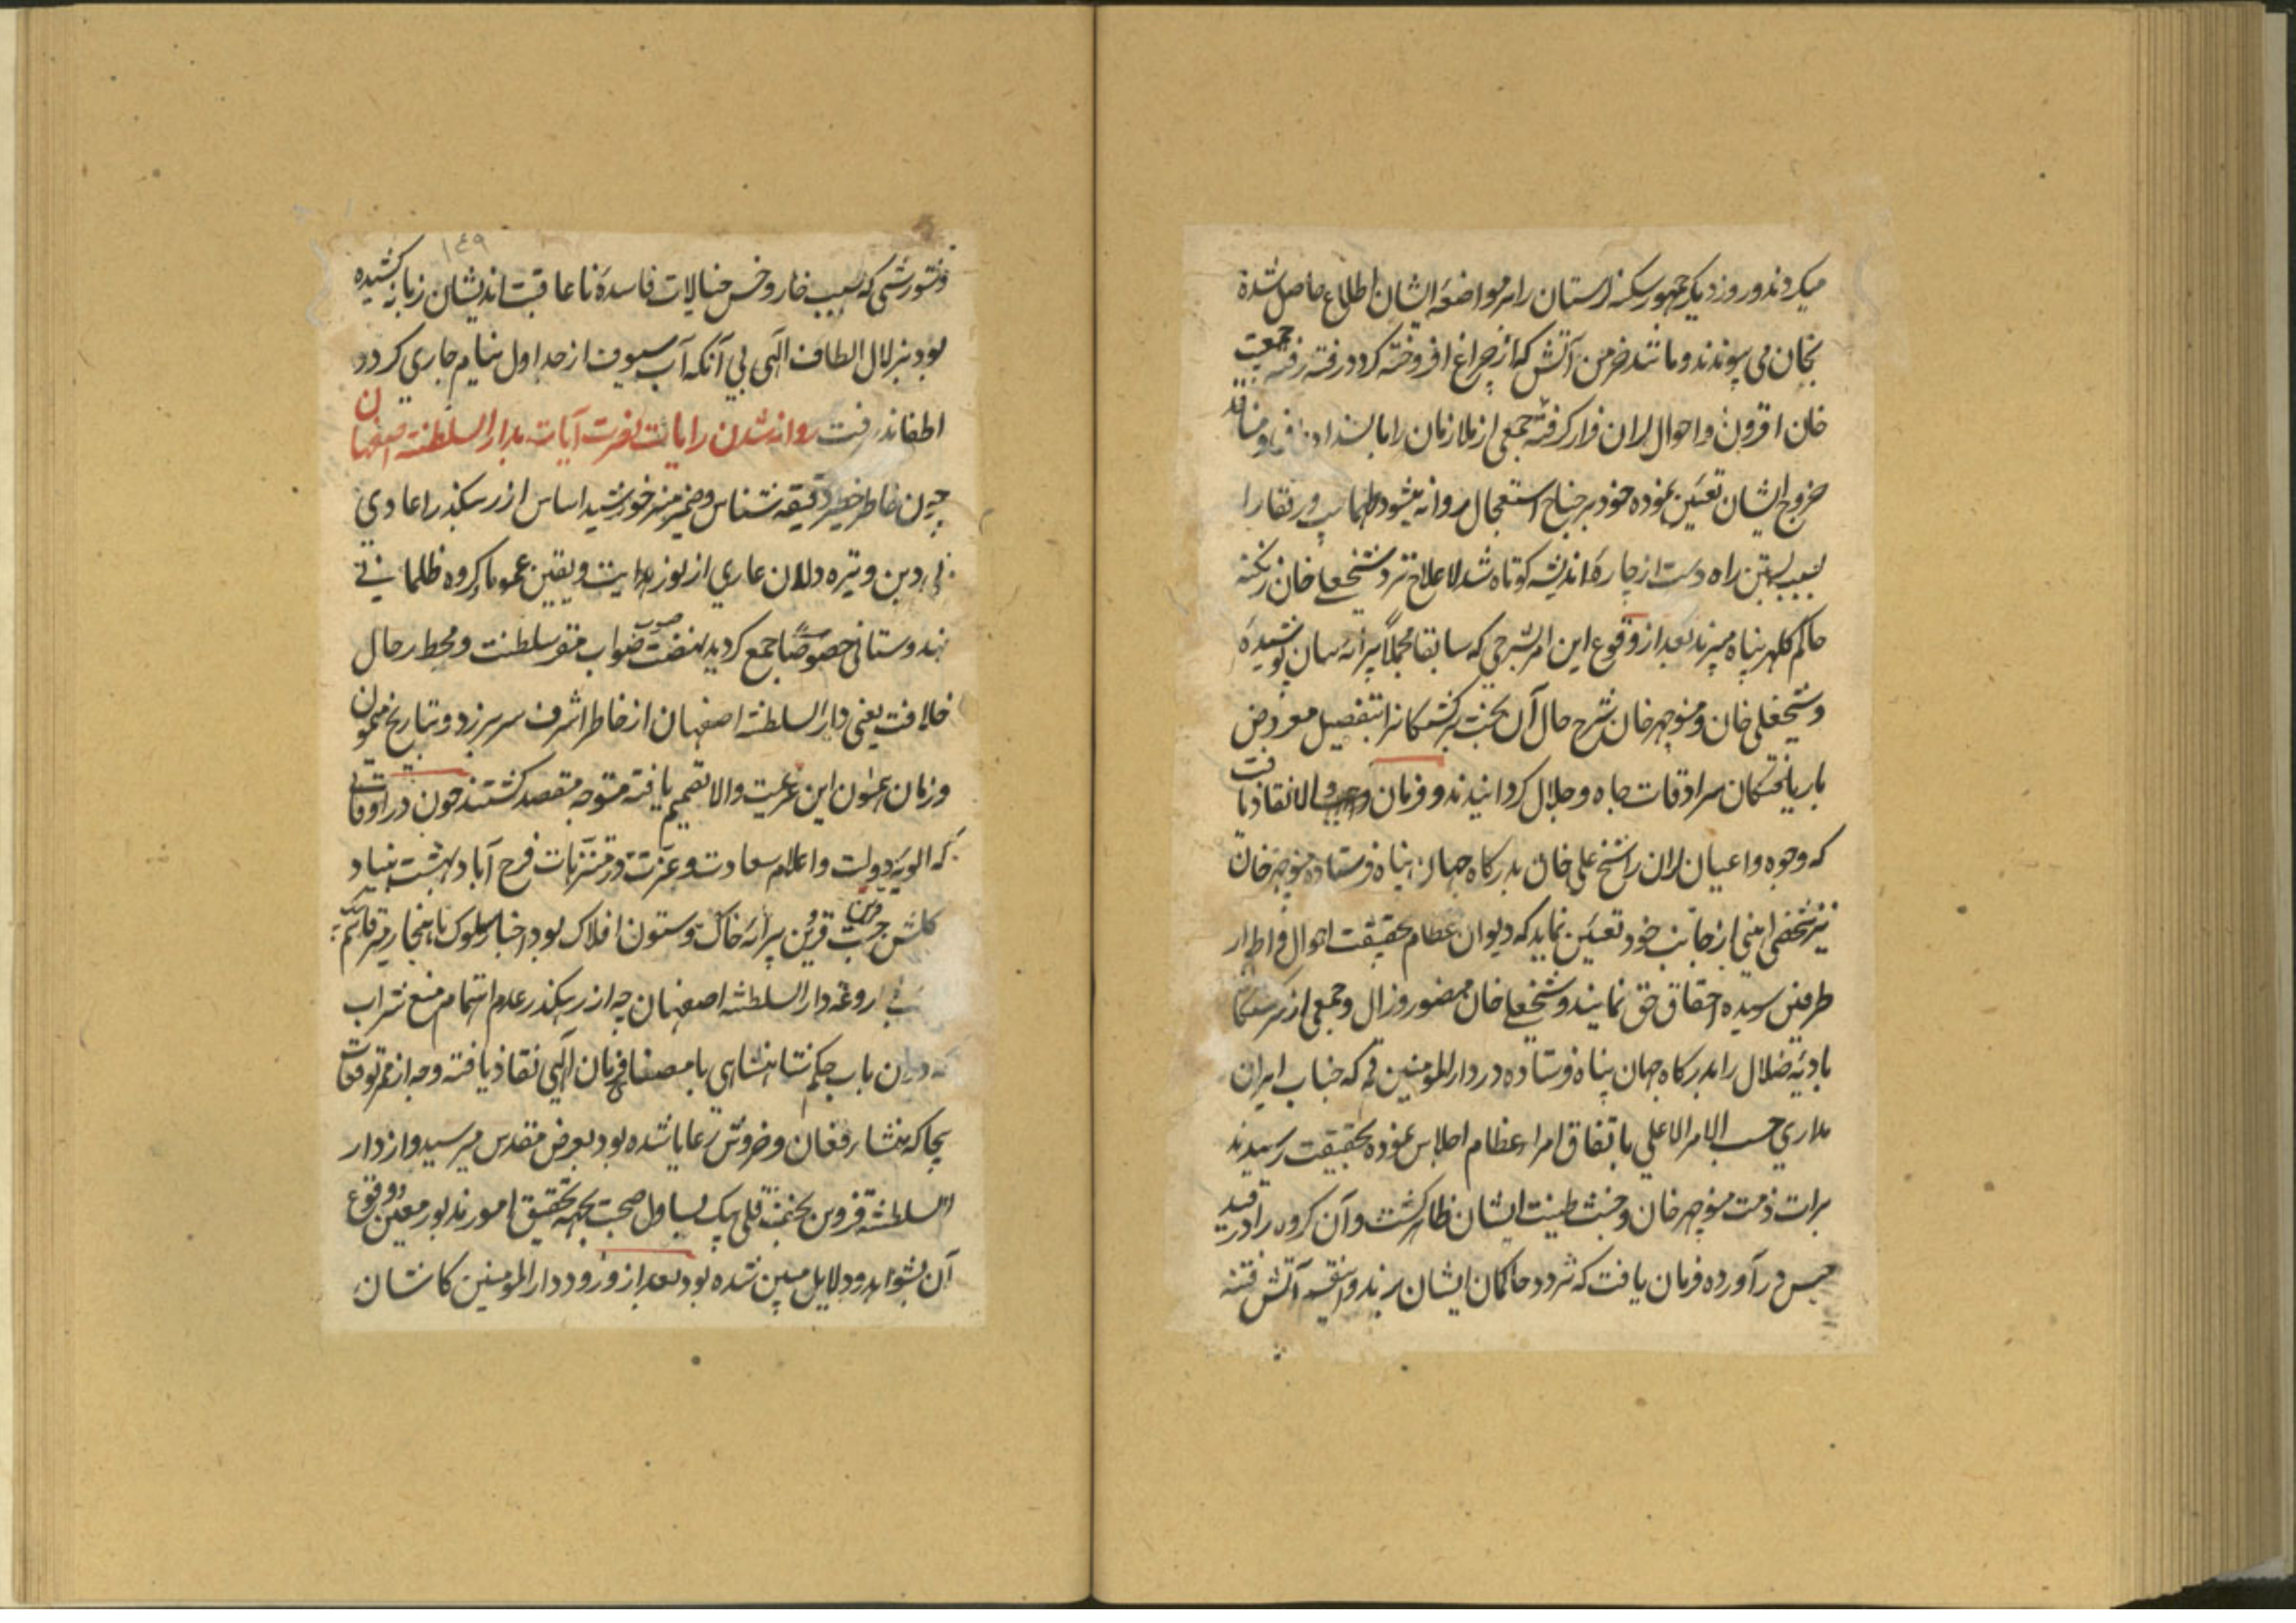 میکردند و روز دیگر جمهور سکنه لرستان را بر مواضعه ایشان اطلاع حاصل شده
بخان می پیوندند و مانند خرمن آتش که از چراغ افروخته کردد رفته رفته جمعیت
خان افزون و احوال لران قرار گرفته جمعی از ملازمان را با
خروج ایشان تعیین نموده خود بر جناح استعجال روانه میشود طهماسب و رفقا را
بسبب بستن راه دست از چاره اندیشه کوتاه شد لاعلاج نزد شیخعلی خان زنکنه
حاکم کلهر پناه میبرند بعد از وقوع این امر شرحی که سابقا مجملا پیرایه بیان پوشیده
و شیخعلی خان و منوچهر خان شرح حال آن بخت برکشتکانرا بتفصیل معروض
بار یافتکان سرادقات جاه و جلال کردانیدند و فرمان واجب الانفاذ یافت
که وجوه و اعیان لران را شیخ علی خان بدرکاه جهان پناه فرستاده منوچهر خان
نیز شخص امینی از جانب خود تعیین نماید که دیوان عظام بحقیقت احوال و اطوار
طرفین رسیده احقاق حق نمایند و شیخعلی خان منصور و زال و جمعی از
بادیه ضلال را بدرکاه جهان پناه فرستاده در دار المومنین قم که جناب ایران
مداری حسب الامر الاعلی باتفاق امراء عظام اجلاس نموده بحقیقت رسیدند
برات ذمت منوچهر خان و خبث طینت ایشان ظاهر کشت و آن کروه را در قید
حبس در آورده فرمان یافت که نزد حاکمان ایشان برند و آتش فتنه
۱٤۹
و شورشی که بسبب خار و خس خیالات فاسدهٔ نا عاقبت اندیشان زبانه کشیده
بود بزلال الطاف الهی بی آنکه آب سیوف از جداول نیام جاری کردد
اطفا پذیرفت روانه شدن رایات نصرت آیات بدار السلطنه اصفهان
چون خاطر خطیر دقیقه شناس و ضمیر منیر خورشید اساس از رهکذر اعادی
بی دین و تیره دلان عاری از نور هدایت و یقین عموما و کروه ظلمانی
هندوستانی خصوصا جمع کردید نهضت صوب صواب مقر سلطنت و محط رحال
خلافت یعنی دار السلطنه اصفهان از خاطر اشرف سر بر زد و بتاریخ میمون
و زمان این عزیمت والا تصمیم یافته متوجه مقصد کشتند چون در اوقاتی
که الویه دولت و اعلام سعادت و عزت در متنزهات فرح آباد بهشت بنیاد
کلشن جنت قرین پیرایه خاک و ستون افلاک بود اخبار سلوک ناهنجار میر قاسم بیک
داروغه دار السلطنه اصفهان چه از رهکذر عدم اهتمام منع شراب
که در آن باب حکم شاهنشاهی با مضاء فرمان الهی نفاذ یافته و چه از ممر توقعات
بیجا که منشاء فغان و خروش رعایا شده بود بعرض مقدس میرسید و از دار
السلطنه قزوین قلی بیک یساول صحبت بجهة تحقیق امور مذبور معین و وقوع
آن بشواهد و دلایل مبین شده بود بعد از ورود دار المومنین کاشان